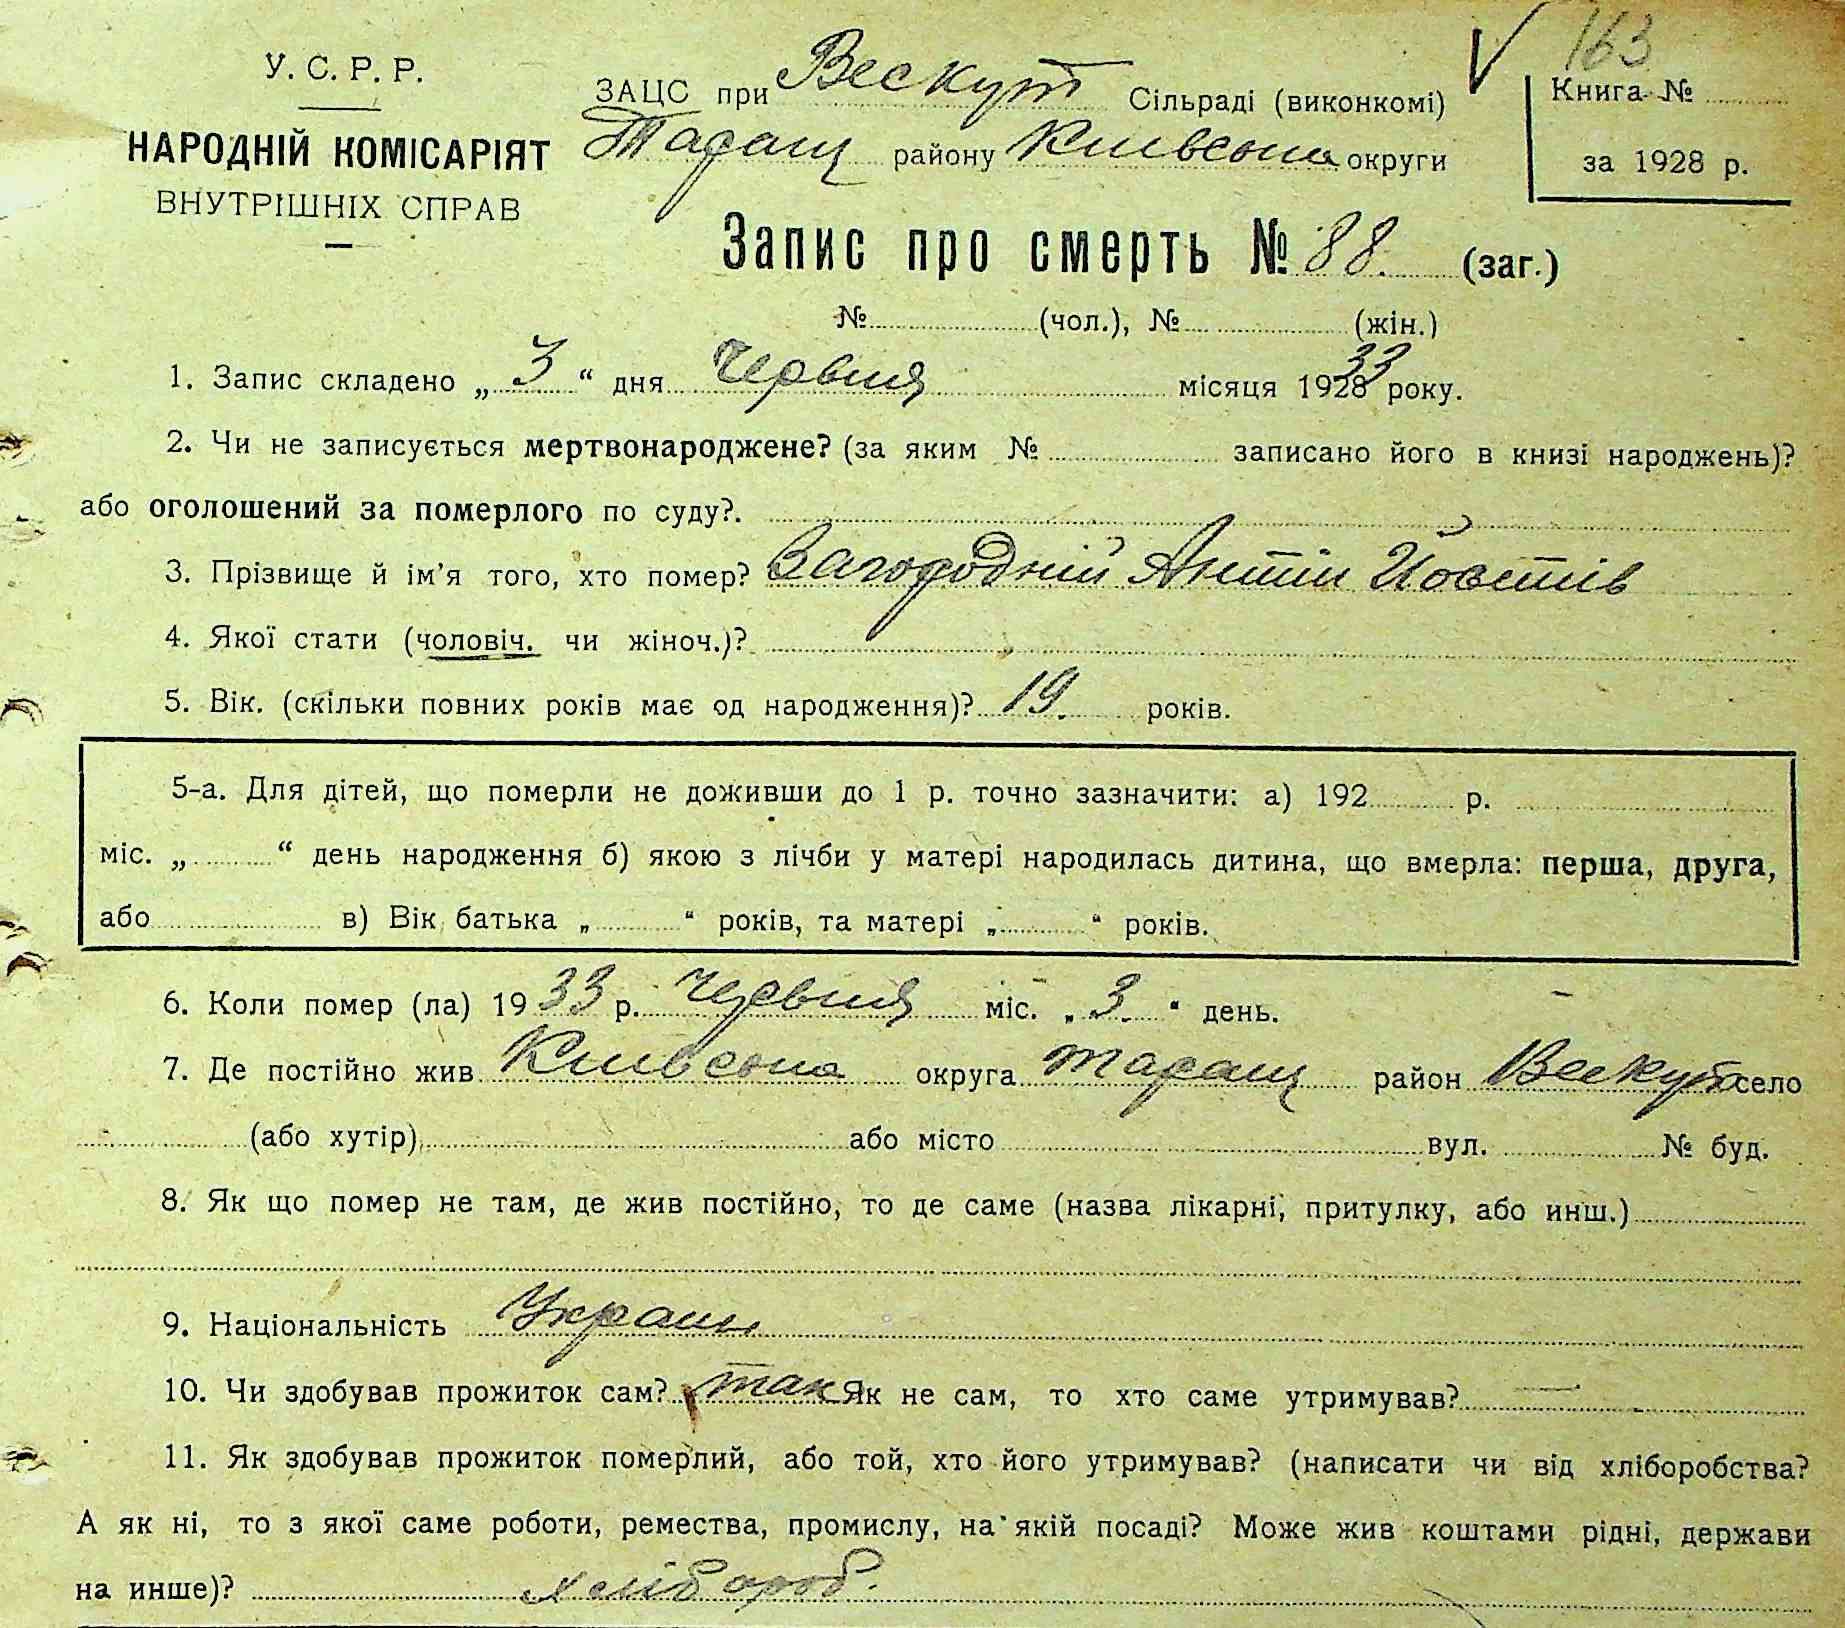 163
У. С. Р. Р.
НАРОДНІЙ КОМІСАРІЯТ
ВНУТРІШНІХ СПРАВ
ЗАЦС при Вескут Сільраді (виконкомі)
Таращ району Київська округи
Книга №
за 1928 р.
Запис про смерть № 88. (заг.)
№ (чол.), № (жін.)
1. Запис складено „ 3 “ дня Червня місяця 1928 33 року.
2. Чи не записується мертвонароджене? (за яким № записано його в книзі народжень)?
або оголошений за померлого по суду?.
3. Прізвище й ім'я того, хто помер? Загородній Антін
4. Якої стати (чоловіч. чи жіноч.)?
5. Вік. (скільки повних років має од народження)? 19. років.
5-а. Для дітей, що померли не доживши до 1 р. точно зазначити: а) 192 р.
міс. „ “ день народження б) якою з лічби у матері народилась дитина, що вмерла: перша, друга,
або в) Вік батька „ “ років, та матері „ “ років.
6. Коли помер (ла) 1933 р. Червня міс. „ 3. “ день.
7. Де постійно жив Київська округа Таращ район Вескут село
(або хутір) або місто вул. № буд.
8. Як що помер не там, де жив постійно, то де саме (назва лікарні, притулку, або инш.)
9. Національність Украин
10. Чи здобував прожиток сам? так Як не сам, то хто саме утримував? —
11. Як здобував прожиток померлий, або той, хто його утримував? (написати чи від хліборобства?
А як ні, то з якої саме роботи, ремества, промислу, на якій посаді? Може жив коштами рідні, держави
на инше)? хлібороб.